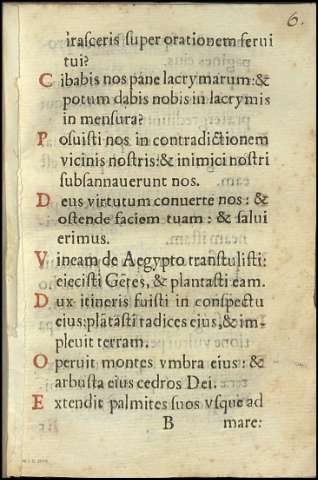 6.
iraſceris ſuper orationem ſerui
tui?
Cibabis nos pane lacrymarum:&
potum dabis nobis in lacrymis
in menſura?
Poſuiſti nos in contradictionem
vicinis noſtris:& inimici noſtri
ſubſannauerunt nos.
Deus virtutum conuerte nos: &
oſtende faciem tuam: & ſalui
erimus.
Vineam de Aegypto tranſtuliſti:
eieciſti Gẽtes, & plantaſti eam.
Dux itineris fuiſti in conſpectu
eius:plãtaſti radices eius,& im-
pleuit terram.
Operuit montes vmbra eius: &
arbuſta eius cedros Dei.
Extendit palmites ſuos vſque ad
B mare: